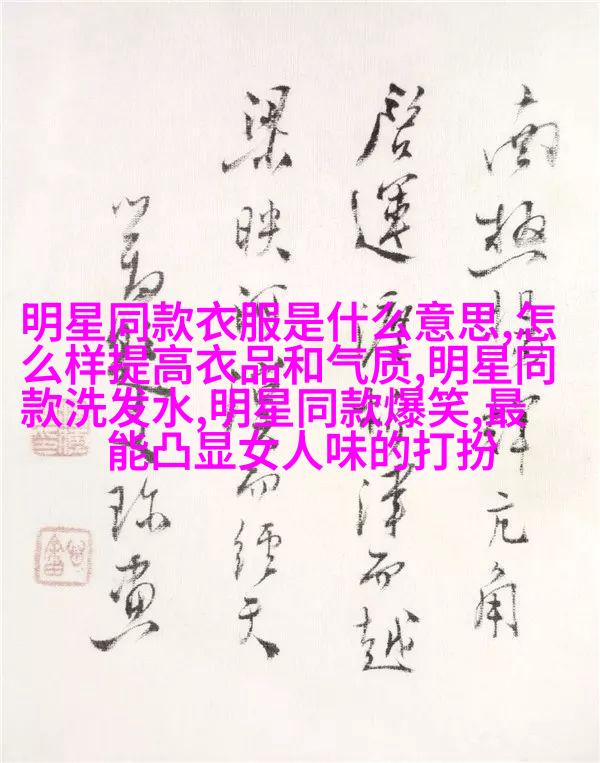 明星同款衣服是什么意思,怎
么样提高衣品和气质,明星同
款洗发水,明星同款爆笑,最
能凸显女人味的打扮
南極輝亢角
啓運津而越
梁映而經天
珍賞